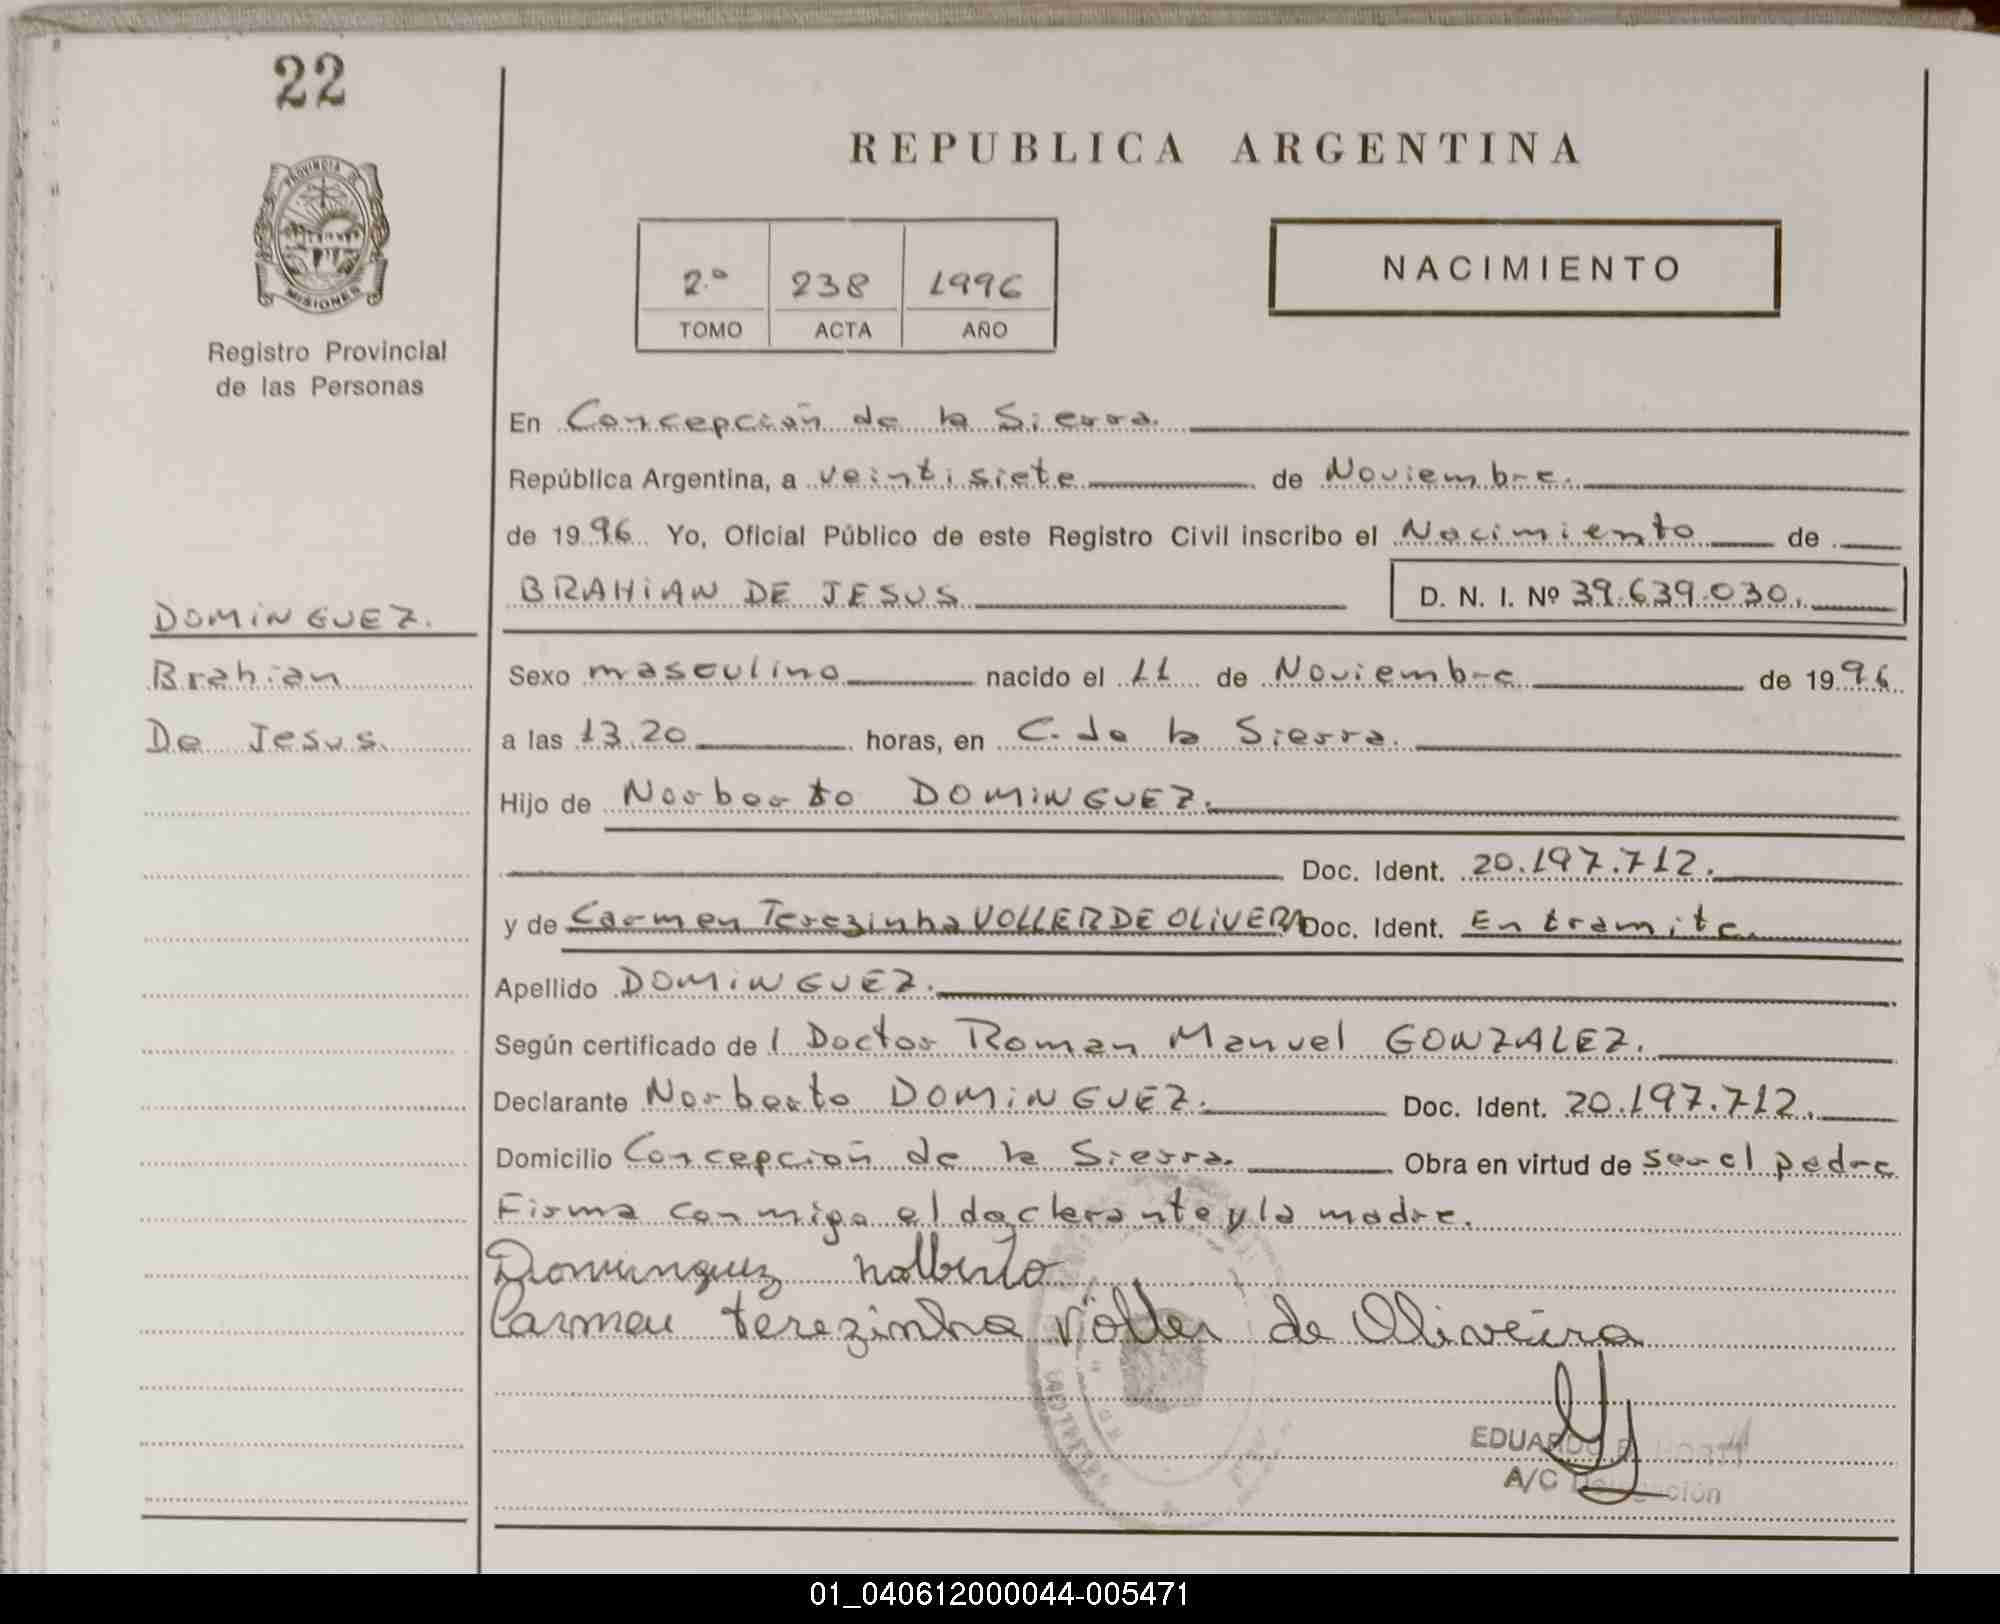 22
PROVINCIA DE
MISIONES
Registro Provincial
de las Personas
DOMINGUEZ.
Brahian
De Jesus.
REPUBLICA ARGENTINA
2.º 238 1996
TOMO ACTA AÑO
NACIMIENTO
En Concepción de la Sierra.
República Argentina, a veintisiete de Noviembre.
de 1996 Yo, Oficial Público de este Registro Civil inscribo el Nacimiento de
BRAHIAN DE JESUS D. N. I. Nº 39.639.030.
Sexo masculino nacido el 11 de Noviembre de 1996
a las 13.20 horas, en C. de la Sierra.
Hijo de Norberto DOMINGUEZ.
Doc. Ident. 20.197.712.
y de Carmen Terezinha VOLLER DE OLIVERA Doc. Ident. En tramite.
Apellido DOMINGUEZ.
Según certificado del Doctor Roman Manuel GONZALEZ.
Declarante Norberto DOMINGUEZ. Doc. Ident. 20.197.712.
Domicilio Concepción de la Sierra. Obra en virtud de ser el padre
Firma conmigo el declarante y la madre.
Dominguez Nolberto
Carmen terezinha Völler de Oliveira
EDUARDO
A/C Delegación
01_040612000044-005471